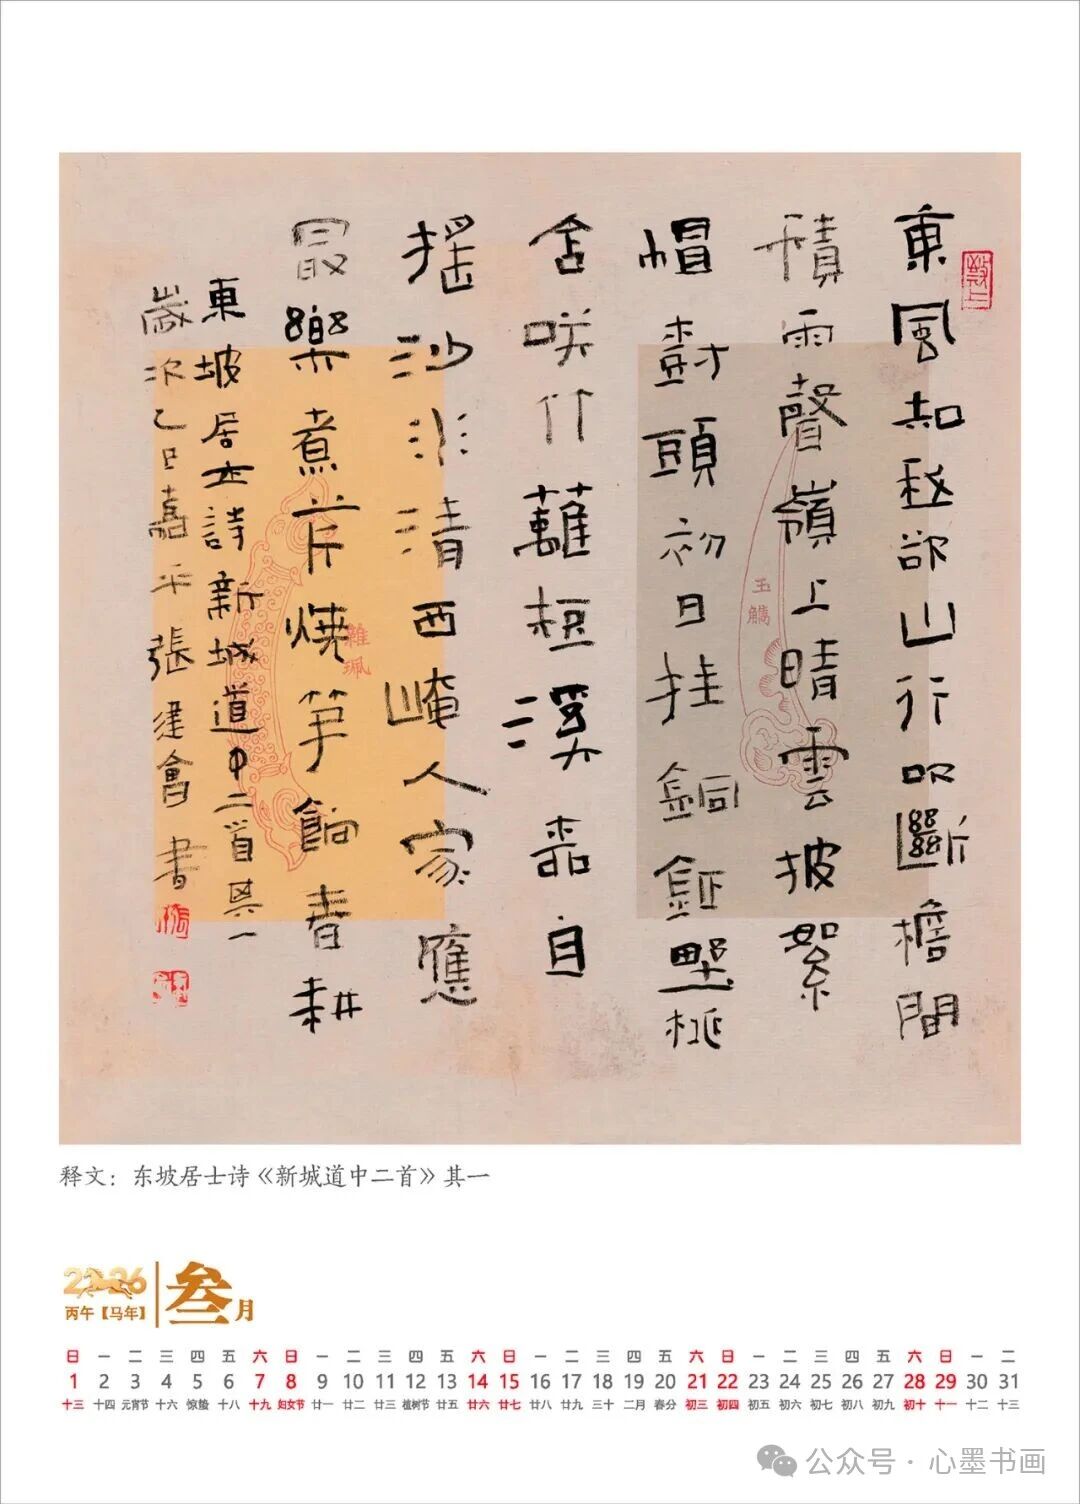 東風知我欲山行吹斷檐間
積雨聲嶺上晴雲披絮
帽樹頭初日挂銅鉦野桃
含咲竹籬短溪
自
搖沙水清西崦人家應
最樂煮芹燒筍餉春耕
東坡居士詩新城道中二首其一
歲次乙巳嘉平張建會書
玉觿
雜珮
释文：东坡居士诗《新城道中二首》其一
2026
丙午【马年】
叁月
日 一 二 三 四 五 六 日 一 二 三 四 五 六 日 一 二 三 四 五 六 日 一 二 三 四 五 六 日 一 二
1 2 3 4 5 6 7 8 9 10 11 12 13 14 15 16 17 18 19 20 21 22 23 24 25 26 27 28 29 30 31
十三 十四 元宵节 十六 惊蛰 十八 十九 妇女节 廿一 廿二 廿三 植树节 廿五 廿六 廿七 廿八 廿九 三十 二月 春分 初三 初四 初五 初六 初七 初八 初九 初十 十一 十二 十三
公众号·心墨书画